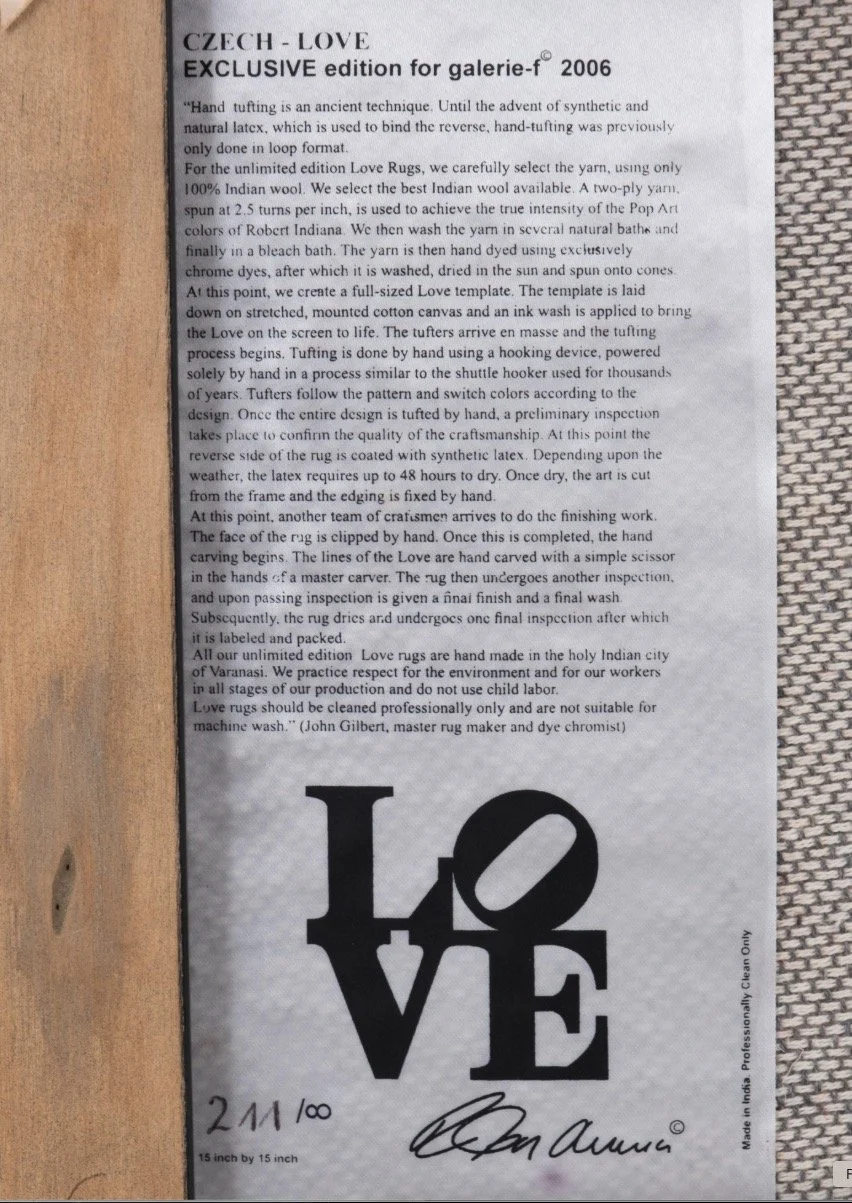 CZECH - LOVE
EXCLUSIVE edition for galerie-f© 2006
"Hand tufting is an ancient technique. Until the advent of synthetic and
natural latex, which is used to bind the reverse, hand-tufting was previously
only done in loop format.
For the unlimited edition Love Rugs, we carefully select the yarn, using only
100% Indian wool. We select the best Indian wool available. A two-ply yarn,
spun at 2.5 turns per inch, is used to achieve the true intensity of the Pop Art
colors of Robert Indiana. We then wash the yarn in several natural baths and
finally in a bleach bath. The yarn is then hand dyed using exclusively
chrome dyes, after which it is washed, dried in the sun and spun onto cones.
At this point, we create a full-sized Love template. The template is laid
down on stretched, mounted cotton canvas and an ink wash is applied to bring
the Love on the screen to life. The tufters arrive en masse and the tufting
process begins. Tufting is done by hand using a hooking device, powered
solely by hand in a process similar to the shuttle hooker used for thousands
of years. Tufters follow the pattern and switch colors according to the
design. Once the entire design is tufted by hand, a preliminary inspection
takes place to confirm the quality of the craftsmanship. At this point the
reverse side of the rug is coated with synthetic latex. Depending upon the
weather, the latex requires up to 48 hours to dry. Once dry, the art is cut
from the frame and the edging is fixed by hand.
At this point, another team of craftsmen arrives to do the finishing work.
The face of the rug is clipped by hand. Once this is completed, the hand
carving begins. The lines of the Love are hand carved with a simple scissor
in the hands of a master carver. The rug then undergoes another inspection,
and upon passing inspection is given a final finish and a final wash.
Subsequently, the rug dries and undergoes one final inspection after which
it is labeled and packed.
All our unlimited edition Love rugs are hand made in the holy Indian city
of Varanasi. We practice respect for the environment and for our workers
in all stages of our production and do not use child labor.
Love rugs should be cleaned professionally only and are not suitable for
machine wash." (John Gilbert, master rug maker and dye chromist)
LO
VE
211/∞
©
15 inch by 15 inch
Made in India. Professionally Clean Only
F